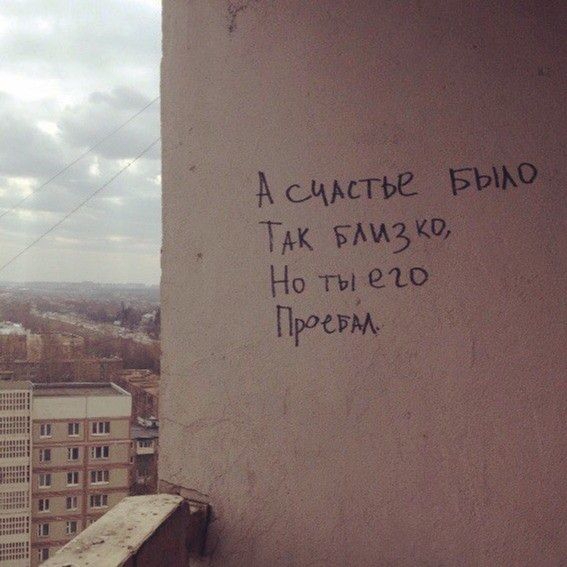 А счастье было
Так близко,
Но ты его
Проебал.